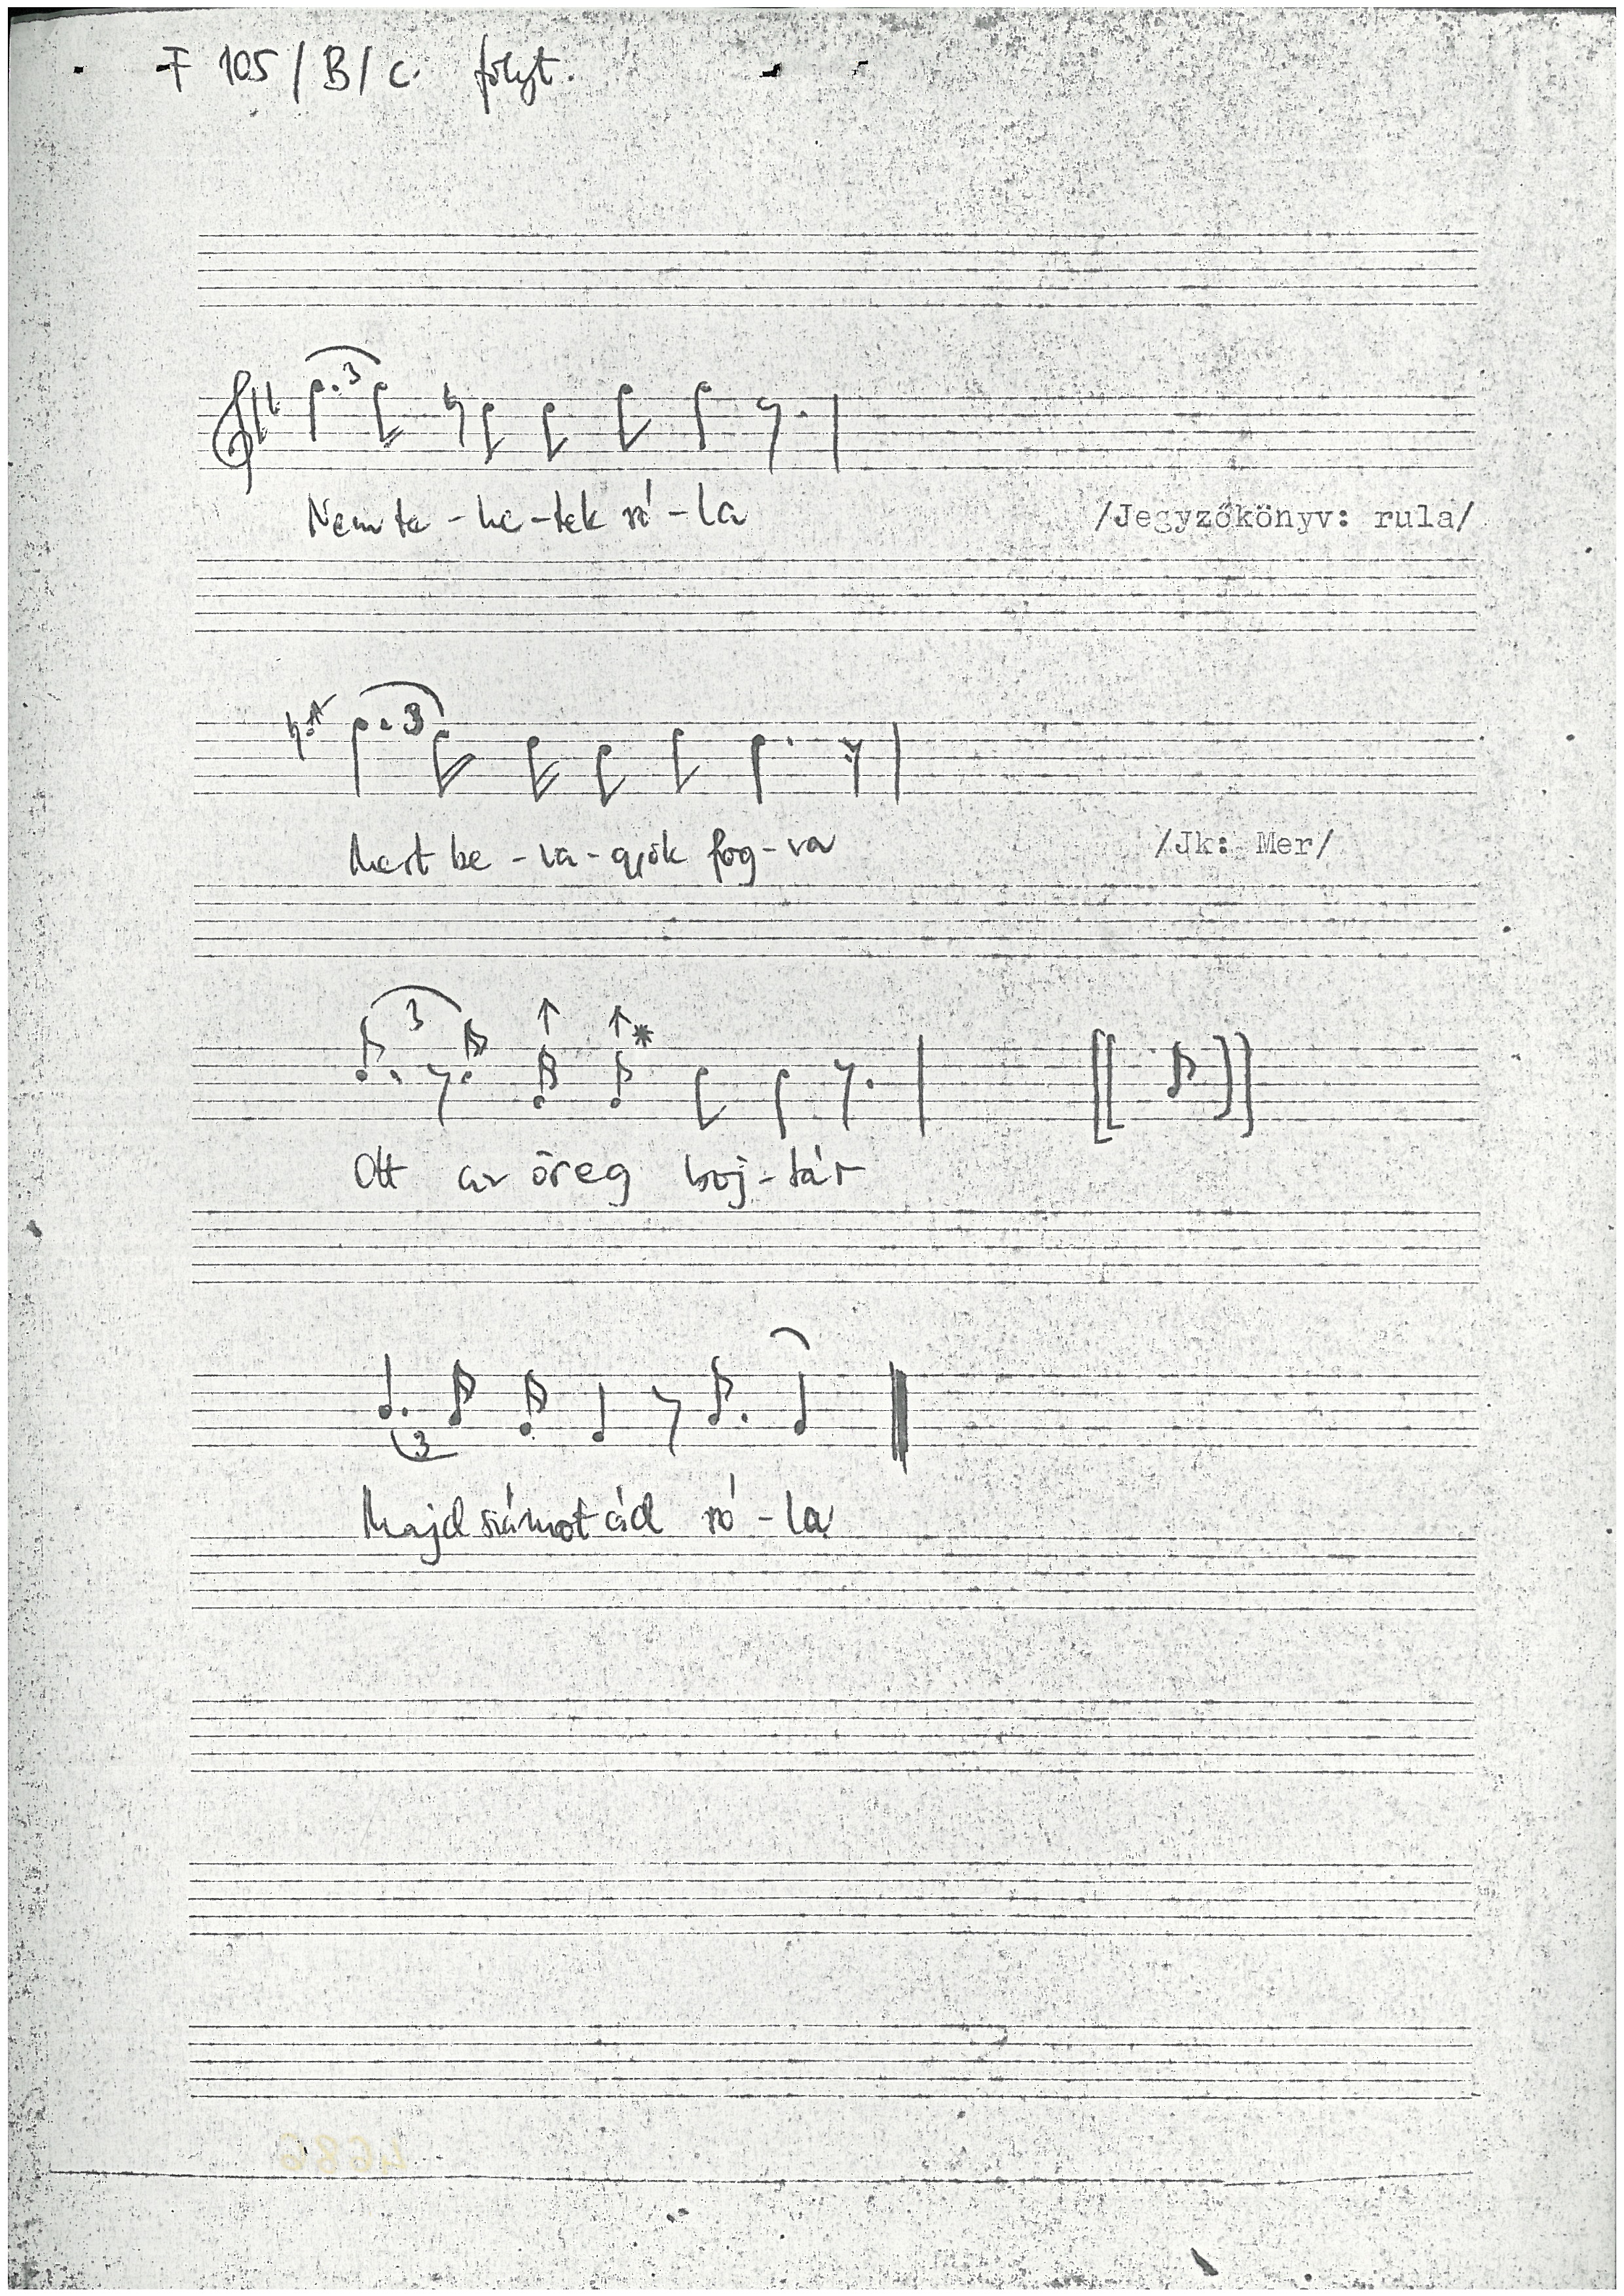 F 105/B/c. folyt.
3
Nem te-he-tek ró-la /Jegyzőkönyv: rula/
3
Mert be-va-gyok fog-va /Jk: Mer/
3
Ott az öreg boj-tár
3
Majd számot ád ró-la
4686